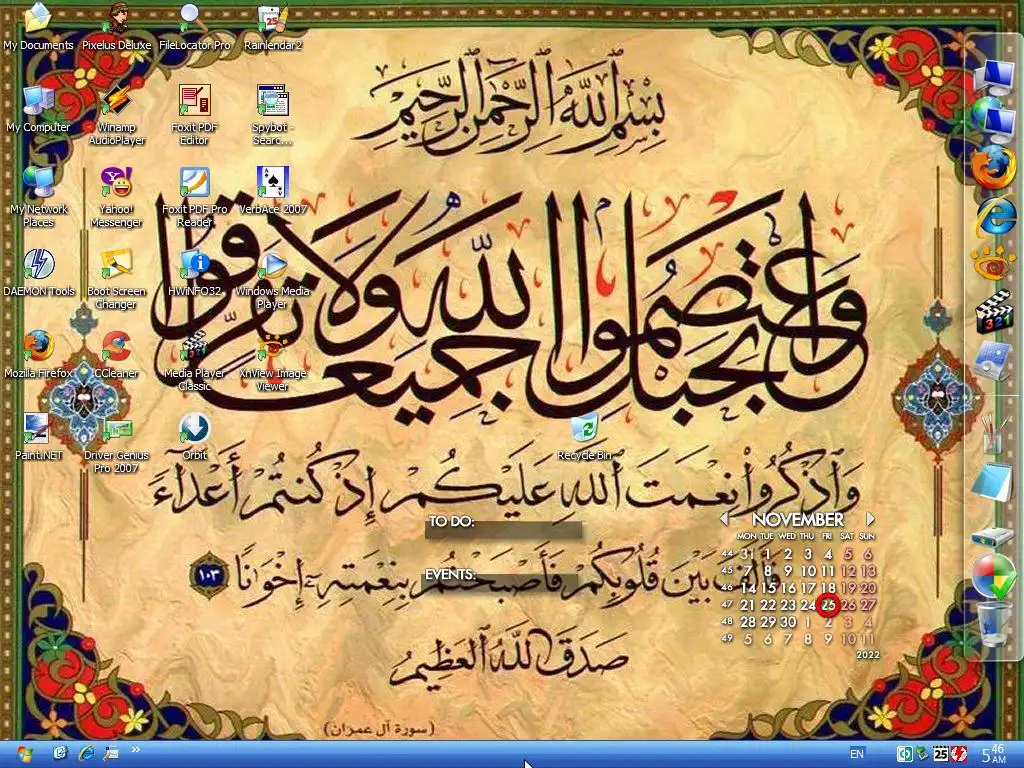 My Documents
Pixelus Deluxe
FileLocator Pro
Rainlendar2
My Computer
Winamp AudioPlayer
Foxit PDF Editor
Spybot - Searc...
My Network Places
Yahoo! Messenger
Foxit PDF Pro Reader
VerbAce 2007
DAEMON Tools
Boot Screen Changer
HWiNFO32
Windows Media Player
Mozilla Firefox
CCleaner
Media Player Classic
XnView Image Viewer
Paint.NET
Driver Genius Pro 2007
Orbit
Recycle Bin
بِسْمِ اللَّهِ الرَّحْمَٰنِ الرَّحِيمِ
وَاعْتَصِمُوا بِحَبْلِ اللَّهِ جَمِيعًا وَلَا تَفَرَّقُوا
وَاذْكُرُوا نِعْمَتَ اللَّهِ عَلَيْكُمْ إِذْ كُنتُمْ أَعْدَاءً
فَأَلَّفَ بَيْنَ قُلُوبِكُمْ فَأَصْبَحْتُم بِنِعْمَتِهِ إِخْوَانًا ١٠٣
صَدَقَ اللَّهُ الْعَظِيمُ
(سورة آل عمران)
TO DO:
EVENTS:
NOVEMBER
MON TUE WED THU FRI SAT SUN
44 31 1 2 3 4 5 6
45 7 8 9 10 11 12 13
46 14 15 16 17 18 19 20
47 21 22 23 24 25 26 27
48 28 29 30 1 2 3 4
49 5 6 7 8 9 10 11
2022
EN
25
5 46 AM